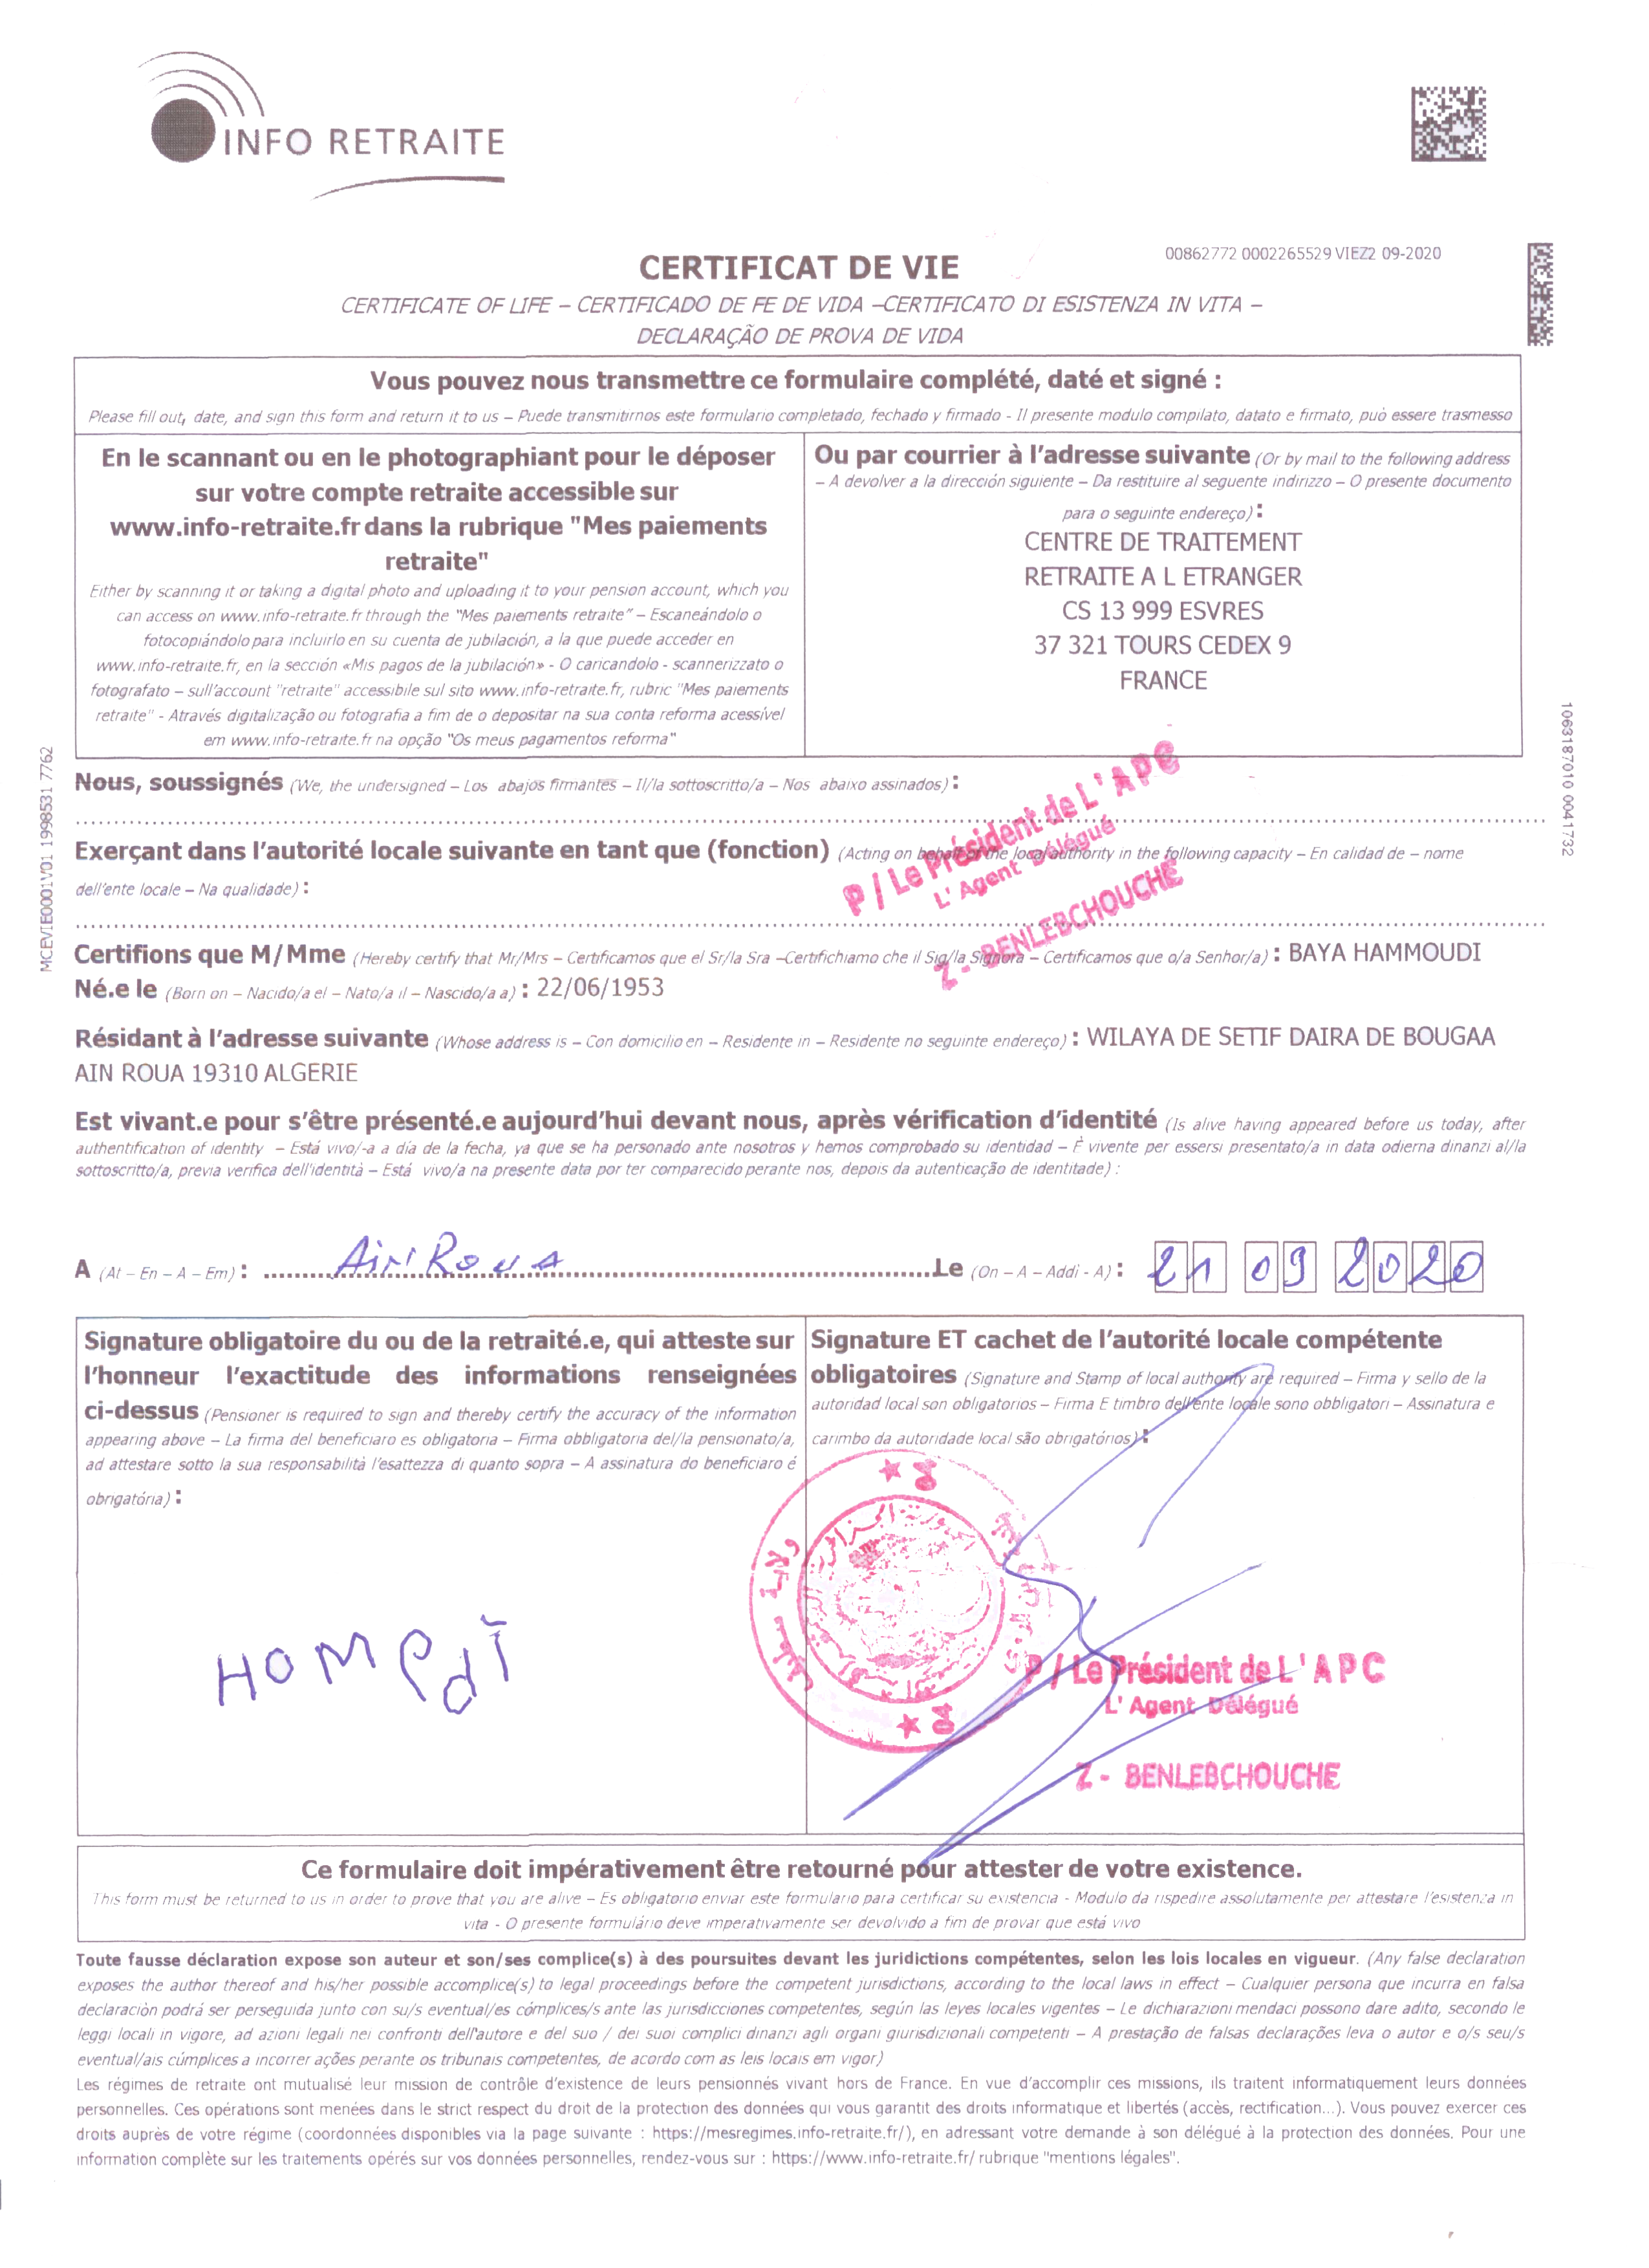 INFO RETRAITE
00862772 0002265529 VIEZ2 09-2020
CERTIFICAT DE VIE
CERTIFICATE OF LIFE – CERTIFICADO DE FE DE VIDA –CERTIFICATO DI ESISTENZA IN VITA –
DECLARAÇÃO DE PROVA DE VIDA
Vous pouvez nous transmettre ce formulaire complété, daté et signé :
Please fill out, date, and sign this form and return it to us – Puede transmitirnos este formulario completado, fechado y firmado - Il presente modulo compilato, datato e firmato, può essere trasmesso
En le scannant ou en le photographiant pour le déposer
sur votre compte retraite accessible sur
www.info-retraite.fr dans la rubrique "Mes paiements
retraite"
Either by scanning it or taking a digital photo and uploading it to your pension account, which you
can access on www.info-retraite.fr through the "Mes paiements retraite" – Escaneándolo o
fotocopiándolo para incluirlo en su cuenta de jubilación, a la que puede acceder en
www.info-retraite.fr, en la sección «Mis pagos de la jubilación» - O caricandolo - scannerizzato o
fotografato – sull'account "retraite" accessibile sul sito www.info-retraite.fr, rubric "Mes paiements
retraite" - Através digitalização ou fotografia a fim de o depositar na sua conta reforma acessível
em www.info-retraite.fr na opção "Os meus pagamentos reforma"
Ou par courrier à l'adresse suivante (Or by mail to the following address
– A devolver a la dirección siguiente – Da restituire al seguente indirizzo – O presente documento
para o seguinte endereço) :
CENTRE DE TRAITEMENT
RETRAITE A L ETRANGER
CS 13 999 ESVRES
37 321 TOURS CEDEX 9
FRANCE
MCEVIE0001V01 1998531 7762
1063187010 0041732
Nous, soussignés (We, the undersigned – Los abajos firmantes – Il/la sottoscritto/a – Nos abaixo assinados) :
P / Le Président de L'APC
L'Agent Délégué
Z - BENLEBCHOUCHE
Exerçant dans l'autorité locale suivante en tant que (fonction) (Acting on behalf of the local authority in the following capacity – En calidad de – nome
dell'ente locale – Na qualidade) :
Certifions que M/Mme (Hereby certify that Mr/Mrs – Certificamos que el Sr/la Sra –Certifichiamo che il Sig/la Signora – Certificamos que o/a Senhor/a) : BAYA HAMMOUDI
Né.e le (Born on – Nacido/a el – Nato/a il – Nascido/a a) : 22/06/1953
Résidant à l'adresse suivante (Whose address is – Con domicilio en – Residente in – Residente no seguinte endereço) : WILAYA DE SETIF DAIRA DE BOUGAA
AIN ROUA 19310 ALGERIE
Est vivant.e pour s'être présenté.e aujourd'hui devant nous, après vérification d'identité (Is alive having appeared before us today, after
authentification of identity – Está vivo/-a a día de la fecha, ya que se ha personado ante nosotros y hemos comprobado su identidad – È vivente per essersi presentato/a in data odierna dinanzi al/la
sottoscritto/a, previa verifica dell'identità – Está vivo/a na presente data por ter comparecido perante nos, depois da autenticação de identidade) :
A (At – En – A – Em) : AiN ROUA Le (On – A – Addi - A) : 21 09 2020
Signature obligatoire du ou de la retraité.e, qui atteste sur
l'honneur l'exactitude des informations renseignées
ci-dessus (Pensioner is required to sign and thereby certify the accuracy of the information
appearing above – La firma del beneficiaro es obligatoria – Firma obbligatoria del/la pensionato/a,
ad attestare sotto la sua responsabilità l'esattezza di quanto sopra – A assinatura do beneficiaro é
obrigatória) :
Signature ET cachet de l'autorité locale compétente
obligatoires (Signature and Stamp of local authority are required – Firma y sello de la
autoridad local son obligatorios – Firma E timbro dell'ente locale sono obbligatori – Assinatura e
carimbo da autoridade local são obrigatórios) :
P / Le Président de L'APC
L'Agent Délégué
Z - BENLEBCHOUCHE
Ce formulaire doit impérativement être retourné pour attester de votre existence.
This form must be returned to us in order to prove that you are alive – Es obligatorio enviar este formulario para certificar su existencia - Modulo da rispedire assolutamente per attestare l'esistenza in
vita - O presente formulário deve imperativamente ser devolvido a fim de provar que está vivo
Toute fausse déclaration expose son auteur et son/ses complice(s) à des poursuites devant les juridictions compétentes, selon les lois locales en vigueur. (Any false declaration
exposes the author thereof and his/her possible accomplice(s) to legal proceedings before the competent jurisdictions, according to the local laws in effect – Cualquier persona que incurra en falsa
declaración podrá ser perseguida junto con su/s eventual/es cómplices/s ante las jurisdicciones competentes, según las leyes locales vigentes – Le dichiarazioni mendaci possono dare adito, secondo le
leggi locali in vigore, ad azioni legali nei confronti dell'autore e del suo / dei suoi complici dinanzi agli organi giurisdizionali competenti – A prestação de falsas declarações leva o autor e o/s seu/s
eventual/ais cúmplices a incorrer ações perante os tribunais competentes, de acordo com as leis locais em vigor)
Les régimes de retraite ont mutualisé leur mission de contrôle d'existence de leurs pensionnés vivant hors de France. En vue d'accomplir ces missions, ils traitent informatiquement leurs données
personnelles. Ces opérations sont menées dans le strict respect du droit de la protection des données qui vous garantit des droits informatique et libertés (accès, rectification...). Vous pouvez exercer ces
droits auprès de votre régime (coordonnées disponibles via la page suivante : https://mesregimes.info-retraite.fr/), en adressant votre demande à son délégué à la protection des données. Pour une
information complète sur les traitements opérés sur vos données personnelles, rendez-vous sur : https://www.info-retraite.fr/ rubrique "mentions légales".